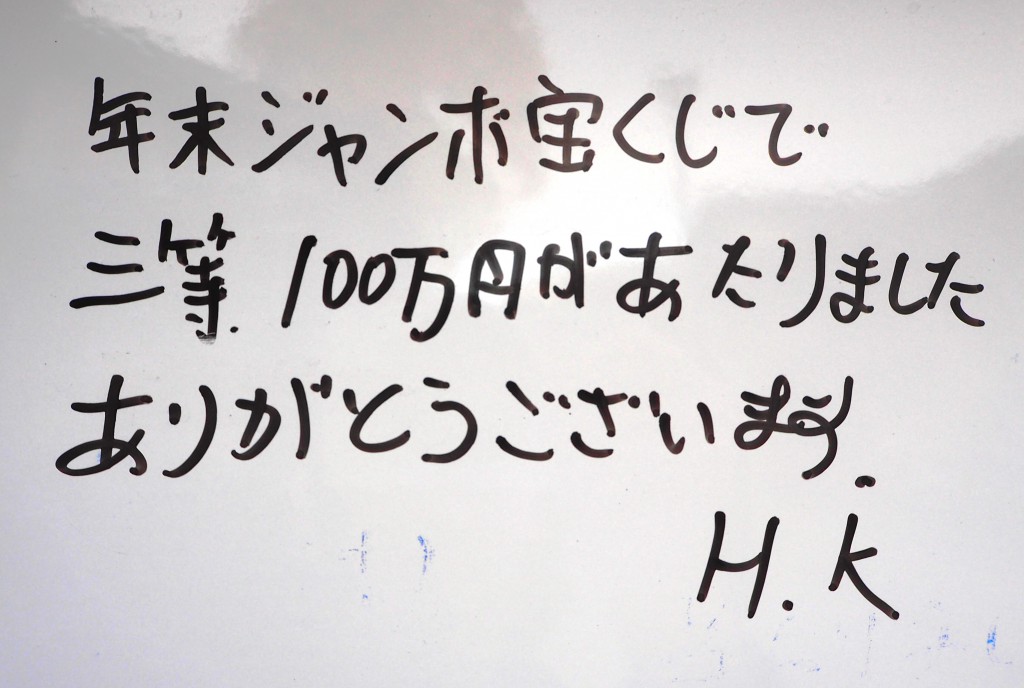 年末ジャンボ宝くじで
三等 100万円があたりました
ありがとうございます.
H.K